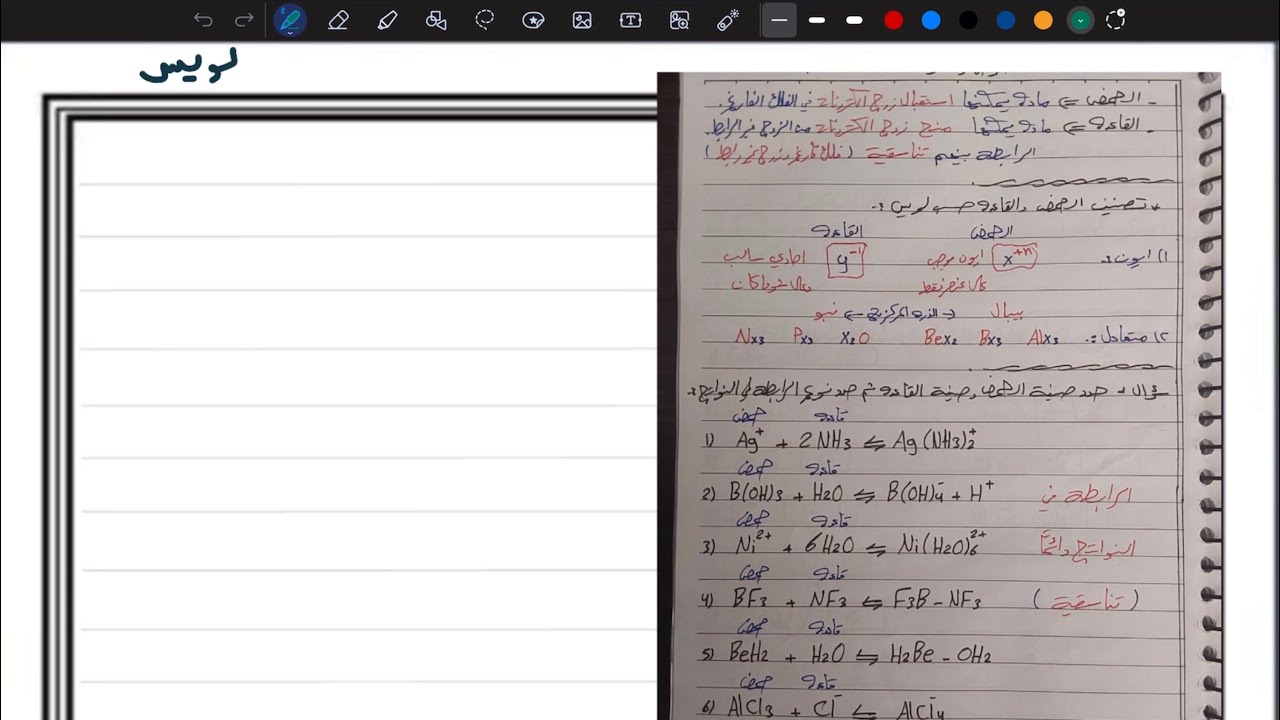 لويس
- الحمض ⇐ مادة يمكنها استقبال زوج الكترونات في الفلك الفارغ.
- القاعدة ⇐ مادة يمكنها منح زوج الكترونات من الزوج غير الرابط.
الرابطة بينهم تناسقية (فلك فارغ وزوج غير رابط)
* تصنيف الحمض والقاعدة حسب لويس :.
الحمض القاعدة
١) ايون :. X⁺ⁿ ايون موجب y⁻¹ احادي سالب
لعنصر فقط
بيبال → الذرة المركزية ← نبو
٢) متعادل :. AlX3 BX3 BeX2 X2O PX3 NX3
سؤال • حدد صيغة الحمض وصيغة القاعدة ثم حدد نوع الرابطة في النواتج :.
حمض قاعدة
1) Ag⁺ + 2NH3 ⇌ Ag(NH3)2⁺
حمض قاعدة
2) B(OH)3 + H2O ⇌ B(OH)4⁻ + H⁺ الرابطة في
حمض قاعدة
3) Ni²⁺ + 6H2O ⇌ Ni(H2O)6²⁺ النواتج دائماً
حمض قاعدة
4) BF3 + NF3 ⇌ F3B-NF3 (تناسقية)
حمض قاعدة
5) BeH2 + H2O ⇌ H2Be-OH2
حمض قاعدة
6) AlCl3 + Cl⁻ ⇌ AlCl4⁻